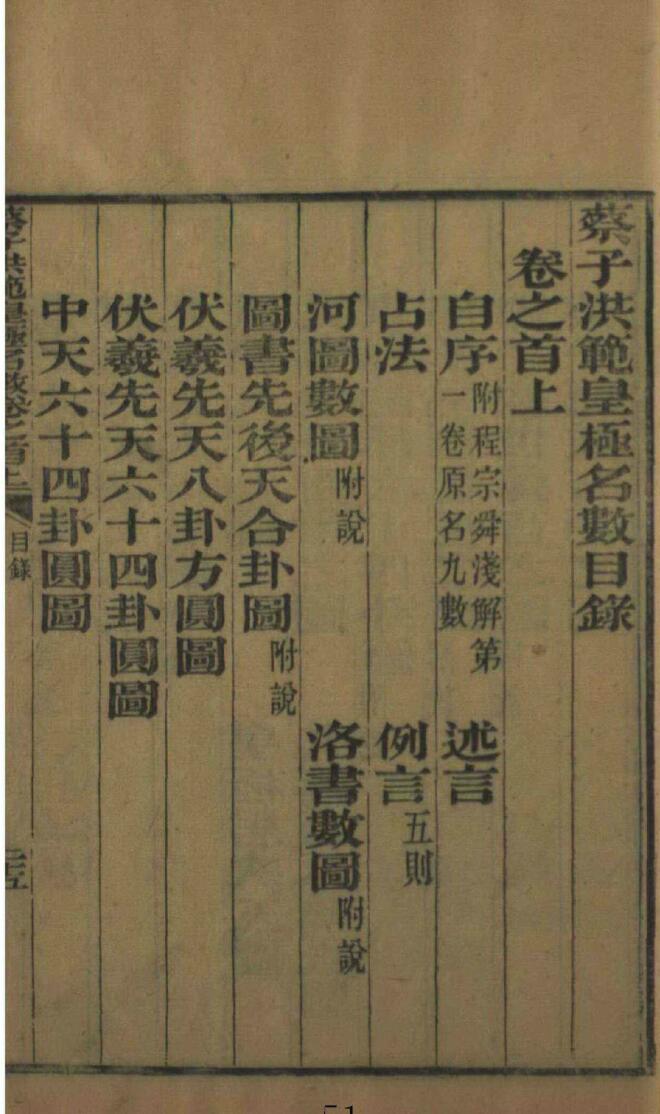 蔡子洪範皇極名數目錄
卷之首上
自序 附程宗舜淺解第一卷原名九數 述言
占法 例言 五則
河圖數圖 附說 洛書數圖 附說
圖書先後天合卦圖 附說
伏羲先天八卦方圓圖
伏羲先天六十四卦圓圖
中天六十四卦圓圖
蔡子洪範皇極名數卷之首上 目錄
51